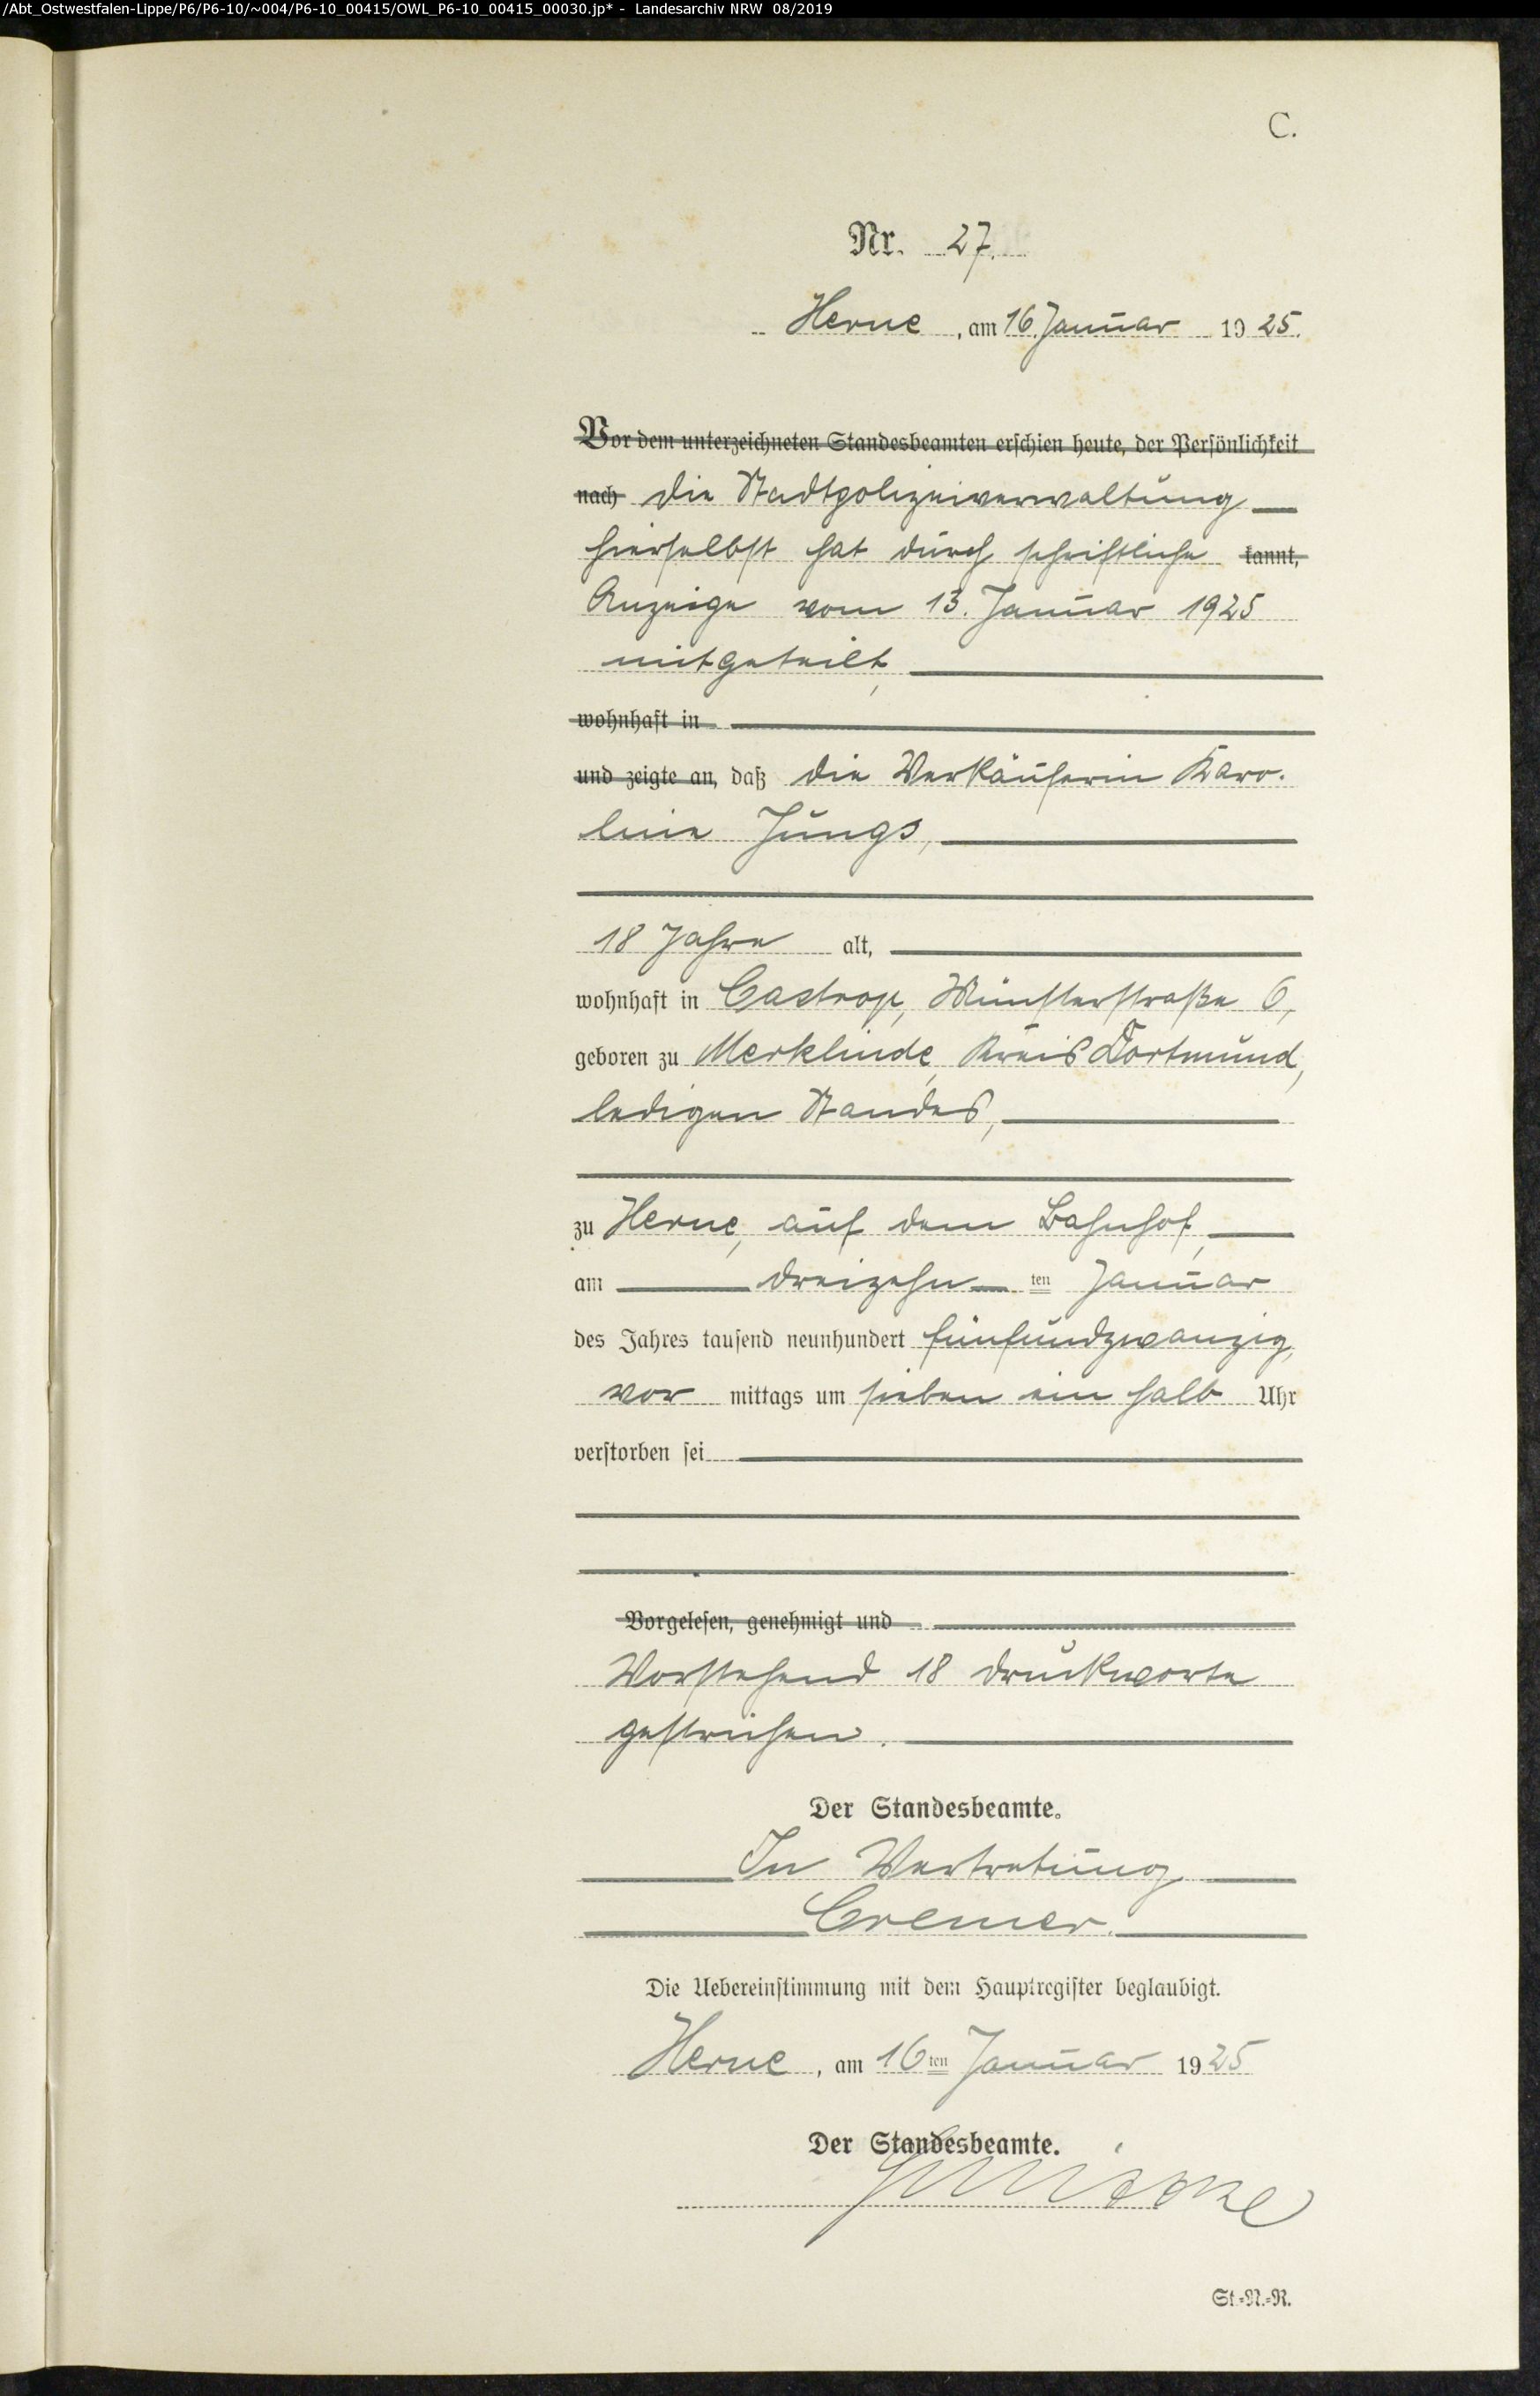 /Abt_Ostwestfalen-Lippe/P6/P6-10/~004/P6-10_00415/OWL_P6-10_00415_00030.jp* - Landesarchiv NRW 08/2019
C.
Nr. 27.
Herne, am 16. Januar 1925.
Vor dem unterzeichneten Standesbeamten erschien heute, der Persönlichkeit
nach die Stadtpolizeiverwaltung
hierselbst hat durch schriftliche kannt,
Anzeige vom 13. Januar 1925
mitgeteilt,
wohnhaft in
und zeigte an, daß die Verkäuferin Karo-
line Jungs,
18 Jahre alt,
wohnhaft in Castrop, Münsterstraße 6,
geboren zu Merklinde, Kreis Dortmund,
ledigen Standes,
zu Herne, auf dem Bahnhof,
am dreizehn ten Januar
des Jahres tausend neunhundert fünfundzwanzig,
vor mittags um sieben ein halb Uhr
verstorben sei
Vorgelesen, genehmigt und
Vorstehend 18 Druckworte
gestrichen.
Der Standesbeamte.
In Vertretung
Cremer.
Die Uebereinstimmung mit dem Hauptregister beglaubigt.
Herne, am 16ten Januar 1925
Der Standesbeamte.
St.-N.-R.